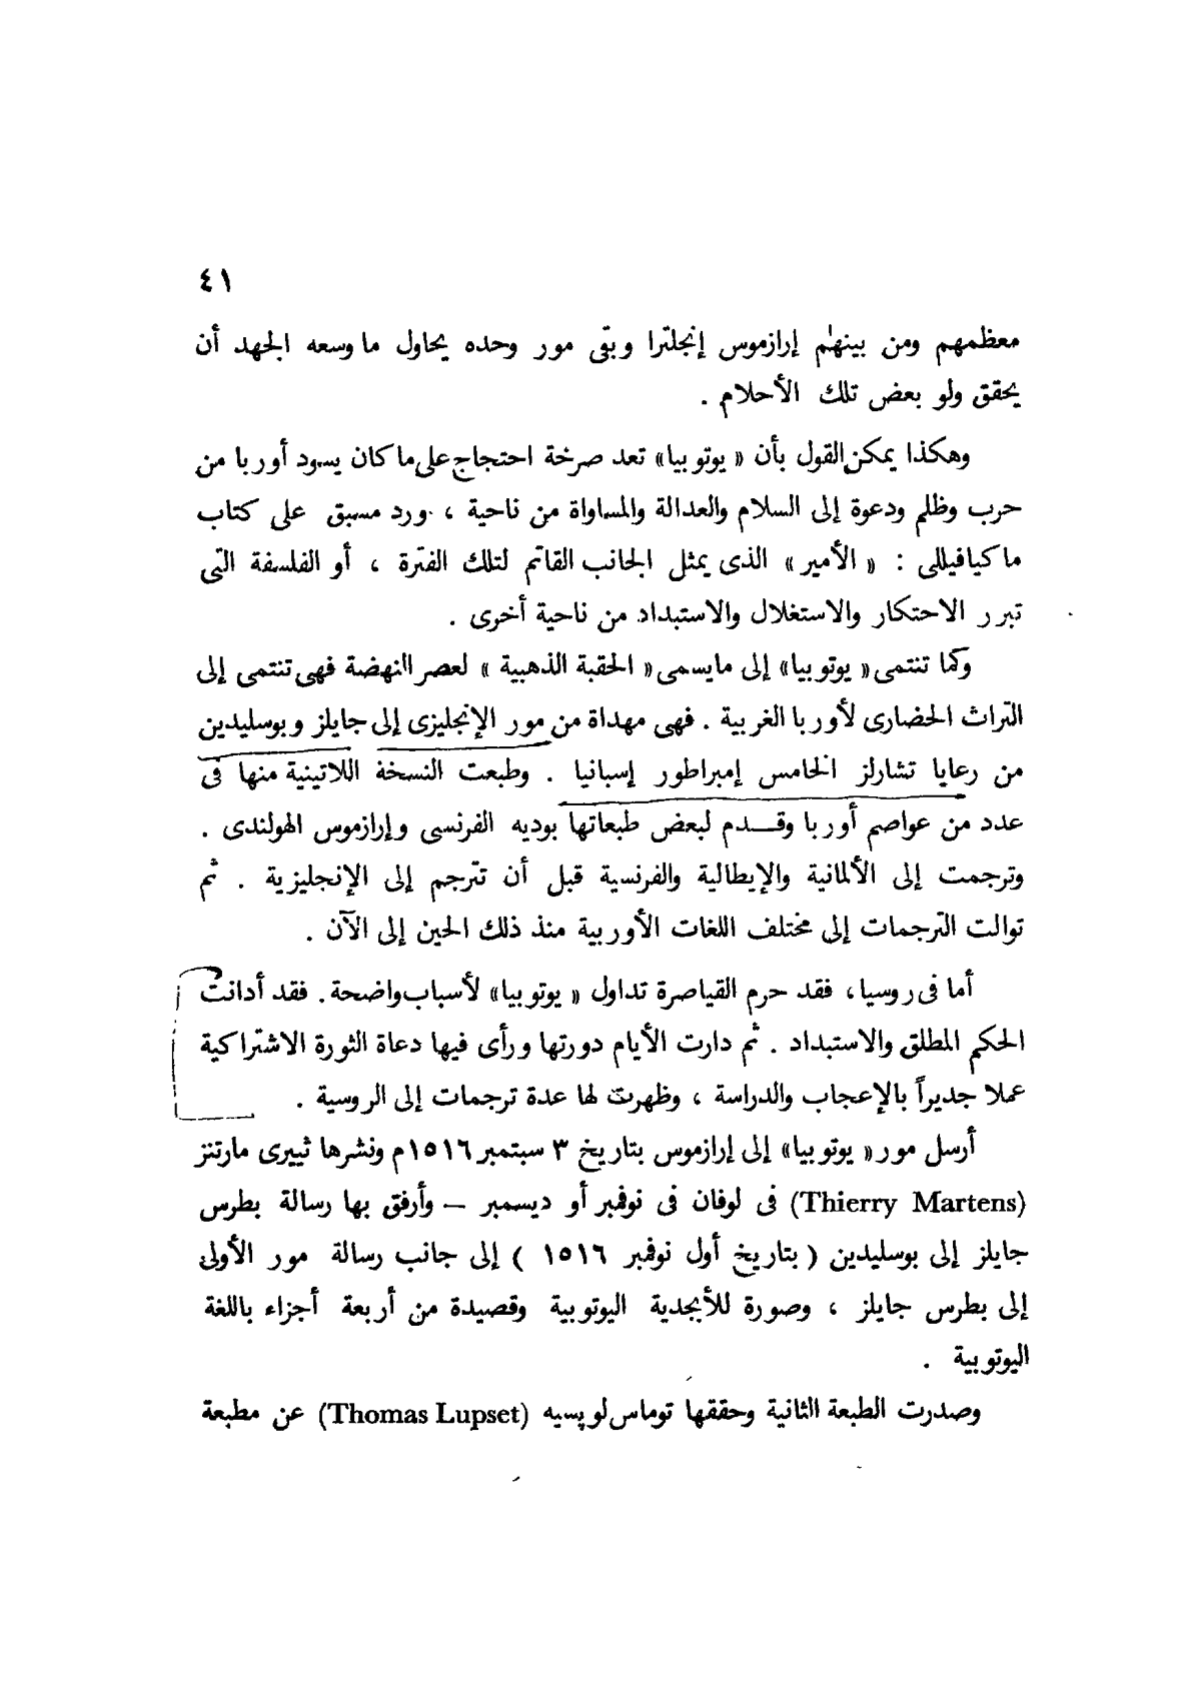 ٤١
معظمهم ومن بينهم إرازموس إنجلترا وبقى مور وحده يحاول ما وسعه الجهد أن
يحقق ولو بعض تلك الأحلام .
وهكذا يمكن القول بأن « يوتوبيا » تعد صرخة احتجاج على ما كان يسود أوربا من
حرب وظلم ودعوة إلى السلام والعدالة والمساواة من ناحية ، ورد مسبق على كتاب
ماكيافيللى : « الأمير » الذى يمثل الجانب القاتم لتلك الفترة ، أو الفلسفة التى
تبرر الاحتكار والاستغلال والاستبداد من ناحية أخرى .
وكما تنتمى « يوتوبيا » إلى مايسمى « الحقبة الذهبية » لعصر النهضة فهى تنتمى إلى
التراث الحضارى لأوربا الغربية . فهى مهداة من مور الإنجليزى إلى جايلز وبوسليدين
من رعايا تشارلز الخامس إمبراطور إسبانيا . وطبعت النسخة اللاتينية منها فى
عدد من عواصم أوربا وقـدم لبعض طبعاتها بوديه الفرنسى وإرازموس الهولندى .
وترجمت إلى الألمانية والإيطالية والفرنسية قبل أن تترجم إلى الإنجليزية . ثم
توالت الترجمات إلى مختلف اللغات الأوربية منذ ذلك الحين إلى الآن .
أما فى روسيا ، فقد حرم القياصرة تداول « يوتوبيا » لأسباب واضحة . فقد أدانت
الحكم المطلق والاستبداد . ثم دارت الأيام دورتها ورأى فيها دعاة الثورة الاشتراكية
عملا جديراً بالإعجاب والدراسة ، وظهرت لها عدة ترجمات إلى الروسية .
أرسل مور « يوتوبيا » إلى إرازموس بتاريخ ٣ سبتمبر ١٥١٦م ونشرها ثييرى مارتنز
(Thierry Martens) فى لوفان فى نوفمبر أو ديسمبر – وأرفق بها رسالة بطرس
جايلز إلى بوسليدين ( بتاريخ أول نوفمبر ١٥١٦ ) إلى جانب رسالة مور الأولى
إلى بطرس جايلز ، وصورة للأبجدية اليوتوبية وقصيدة من أربعة أجزاء باللغة
اليوتوبية .
وصدرت الطبعة الثانية وحققها توماس لوپسيه (Thomas Lupset) عن مطبعة